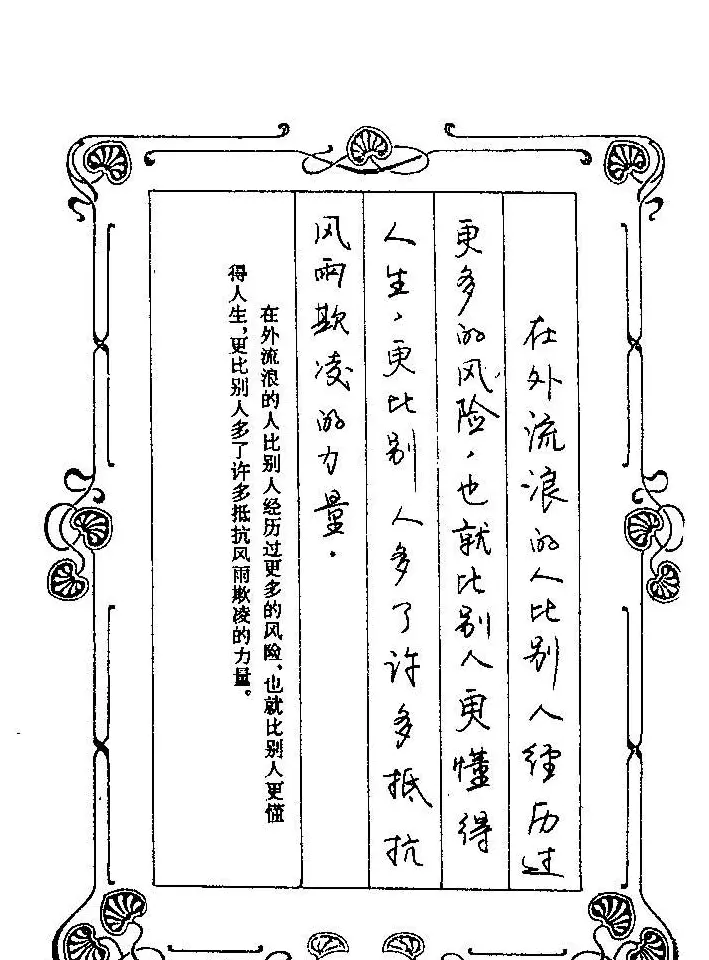 在外流浪的人比别人经历过
更多的风险，也就比别人更懂得
人生，更比别人多了许多抵抗
风雨欺凌的力量．
在外流浪的人比别人经历过更多的风险、也就比别人更懂
得人生，更比别人多了许多抵抗风雨欺凌的力量。